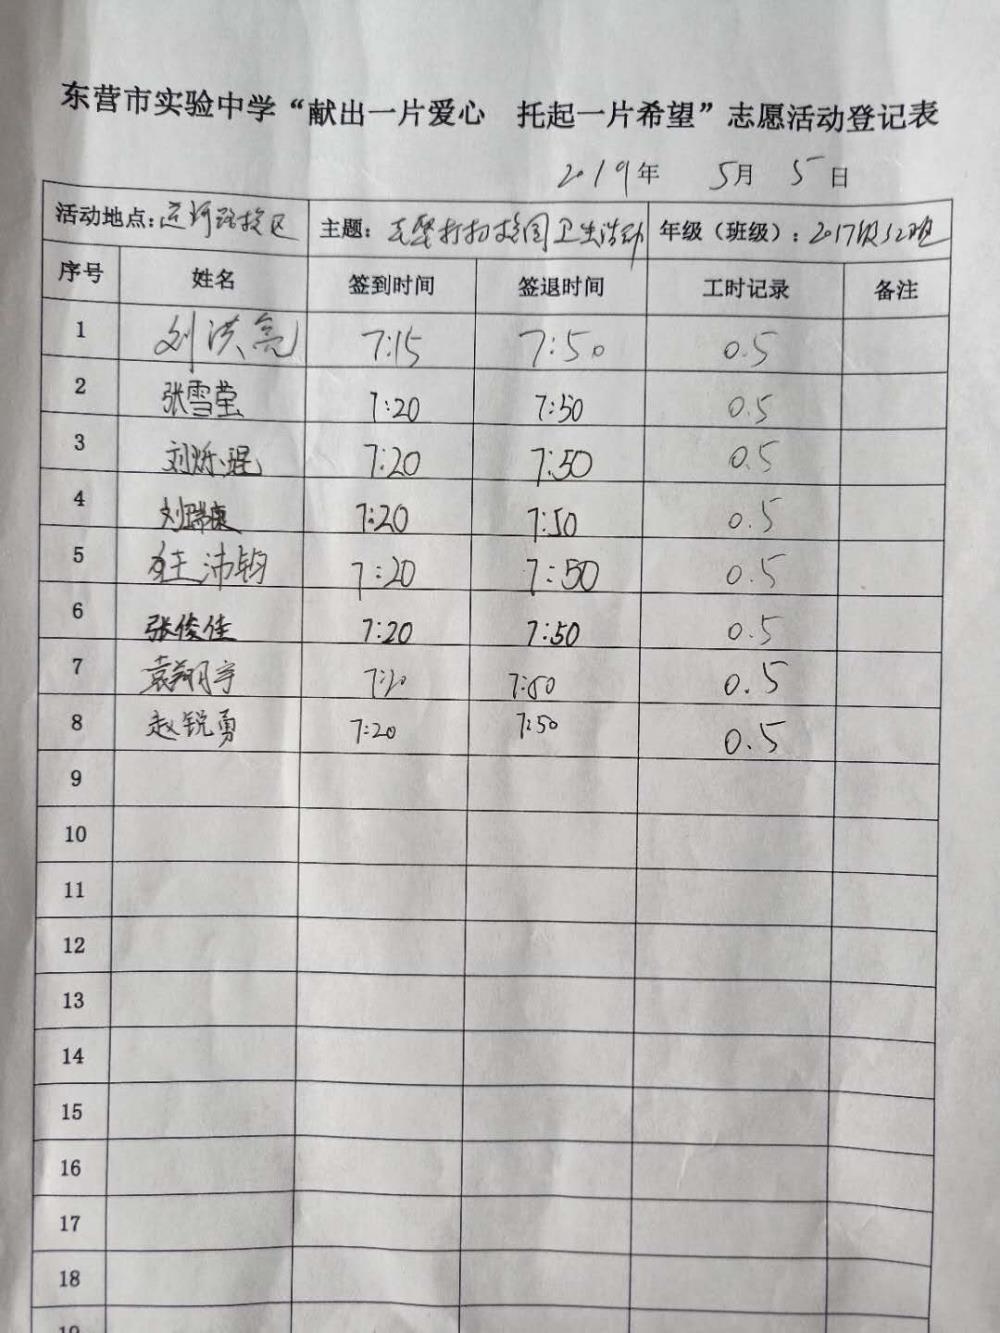 东营市实验中学“献出一片爱心 托起一片希望”志愿活动登记表
2019年 5月 5日
活动地点:运河路校区 主题:志愿打扫校园卫生活动 年级（班级）：2017级32班
序号 姓名 签到时间 签退时间 工时记录 备注
1 刘洪亮 7:15 7:50 0.5
2 张雪莹 7:20 7:50 0.5
3 刘烁琨 7:20 7:50 0.5
4 刘瑞康 7:20 7:50 0.5
5 沛钧 7:20 7:50 0.5
6 张俊佳 7:20 7:50 0.5
7 袁翔宇 7:20 7:50 0.5
8 赵锐勇 7:20 7:50 0.5
9
10
11
12
13
14
15
16
17
18
19